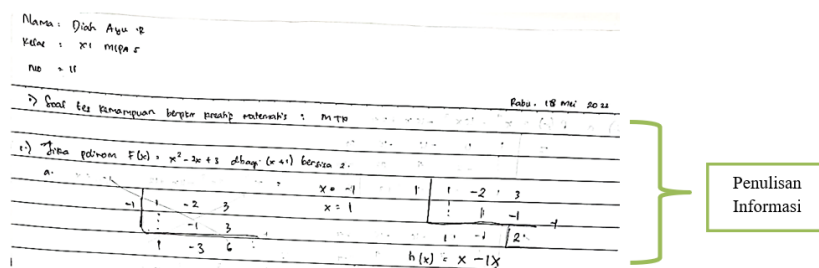 Nama : Diah Ayu R
Kelas : XI MIPA 5
no = 11
Rabu, 18 Mei 2022
Soal tes kemampuan berpikir kreatif matematis : MTK
1.) Jika polinom F(x) = x² - 2x + 3 dibagi (x+1) bersisa 2.
a.
x = -1
x = 1
-1 | 1 -2 3
-1 3
1 -3 6
1 | 1 -2 3
1 -1 +
1 -1 | 2
h(x) = x - 1x
Penulisan
Informasi